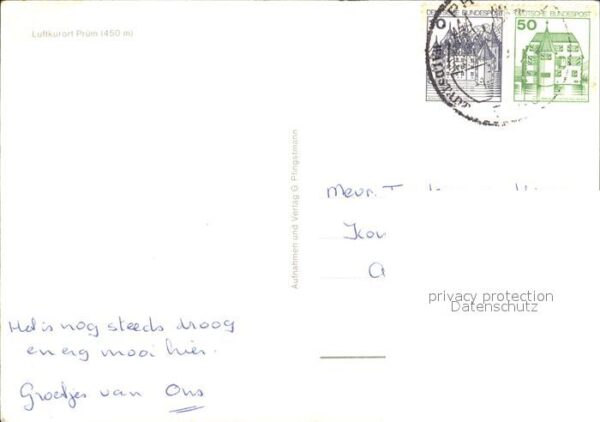 Luftkurort Prüm (450 m)
DEUTSCHE BUNDESPOST
DEUTSCHE BUNDESPOST
50
Aufnahmen und Verlag G. Pfingstmann
Mevr.
privacy protection
Datenschutz
Het is nog steeds droog
en erg mooi hier.
Groetjes van Ons